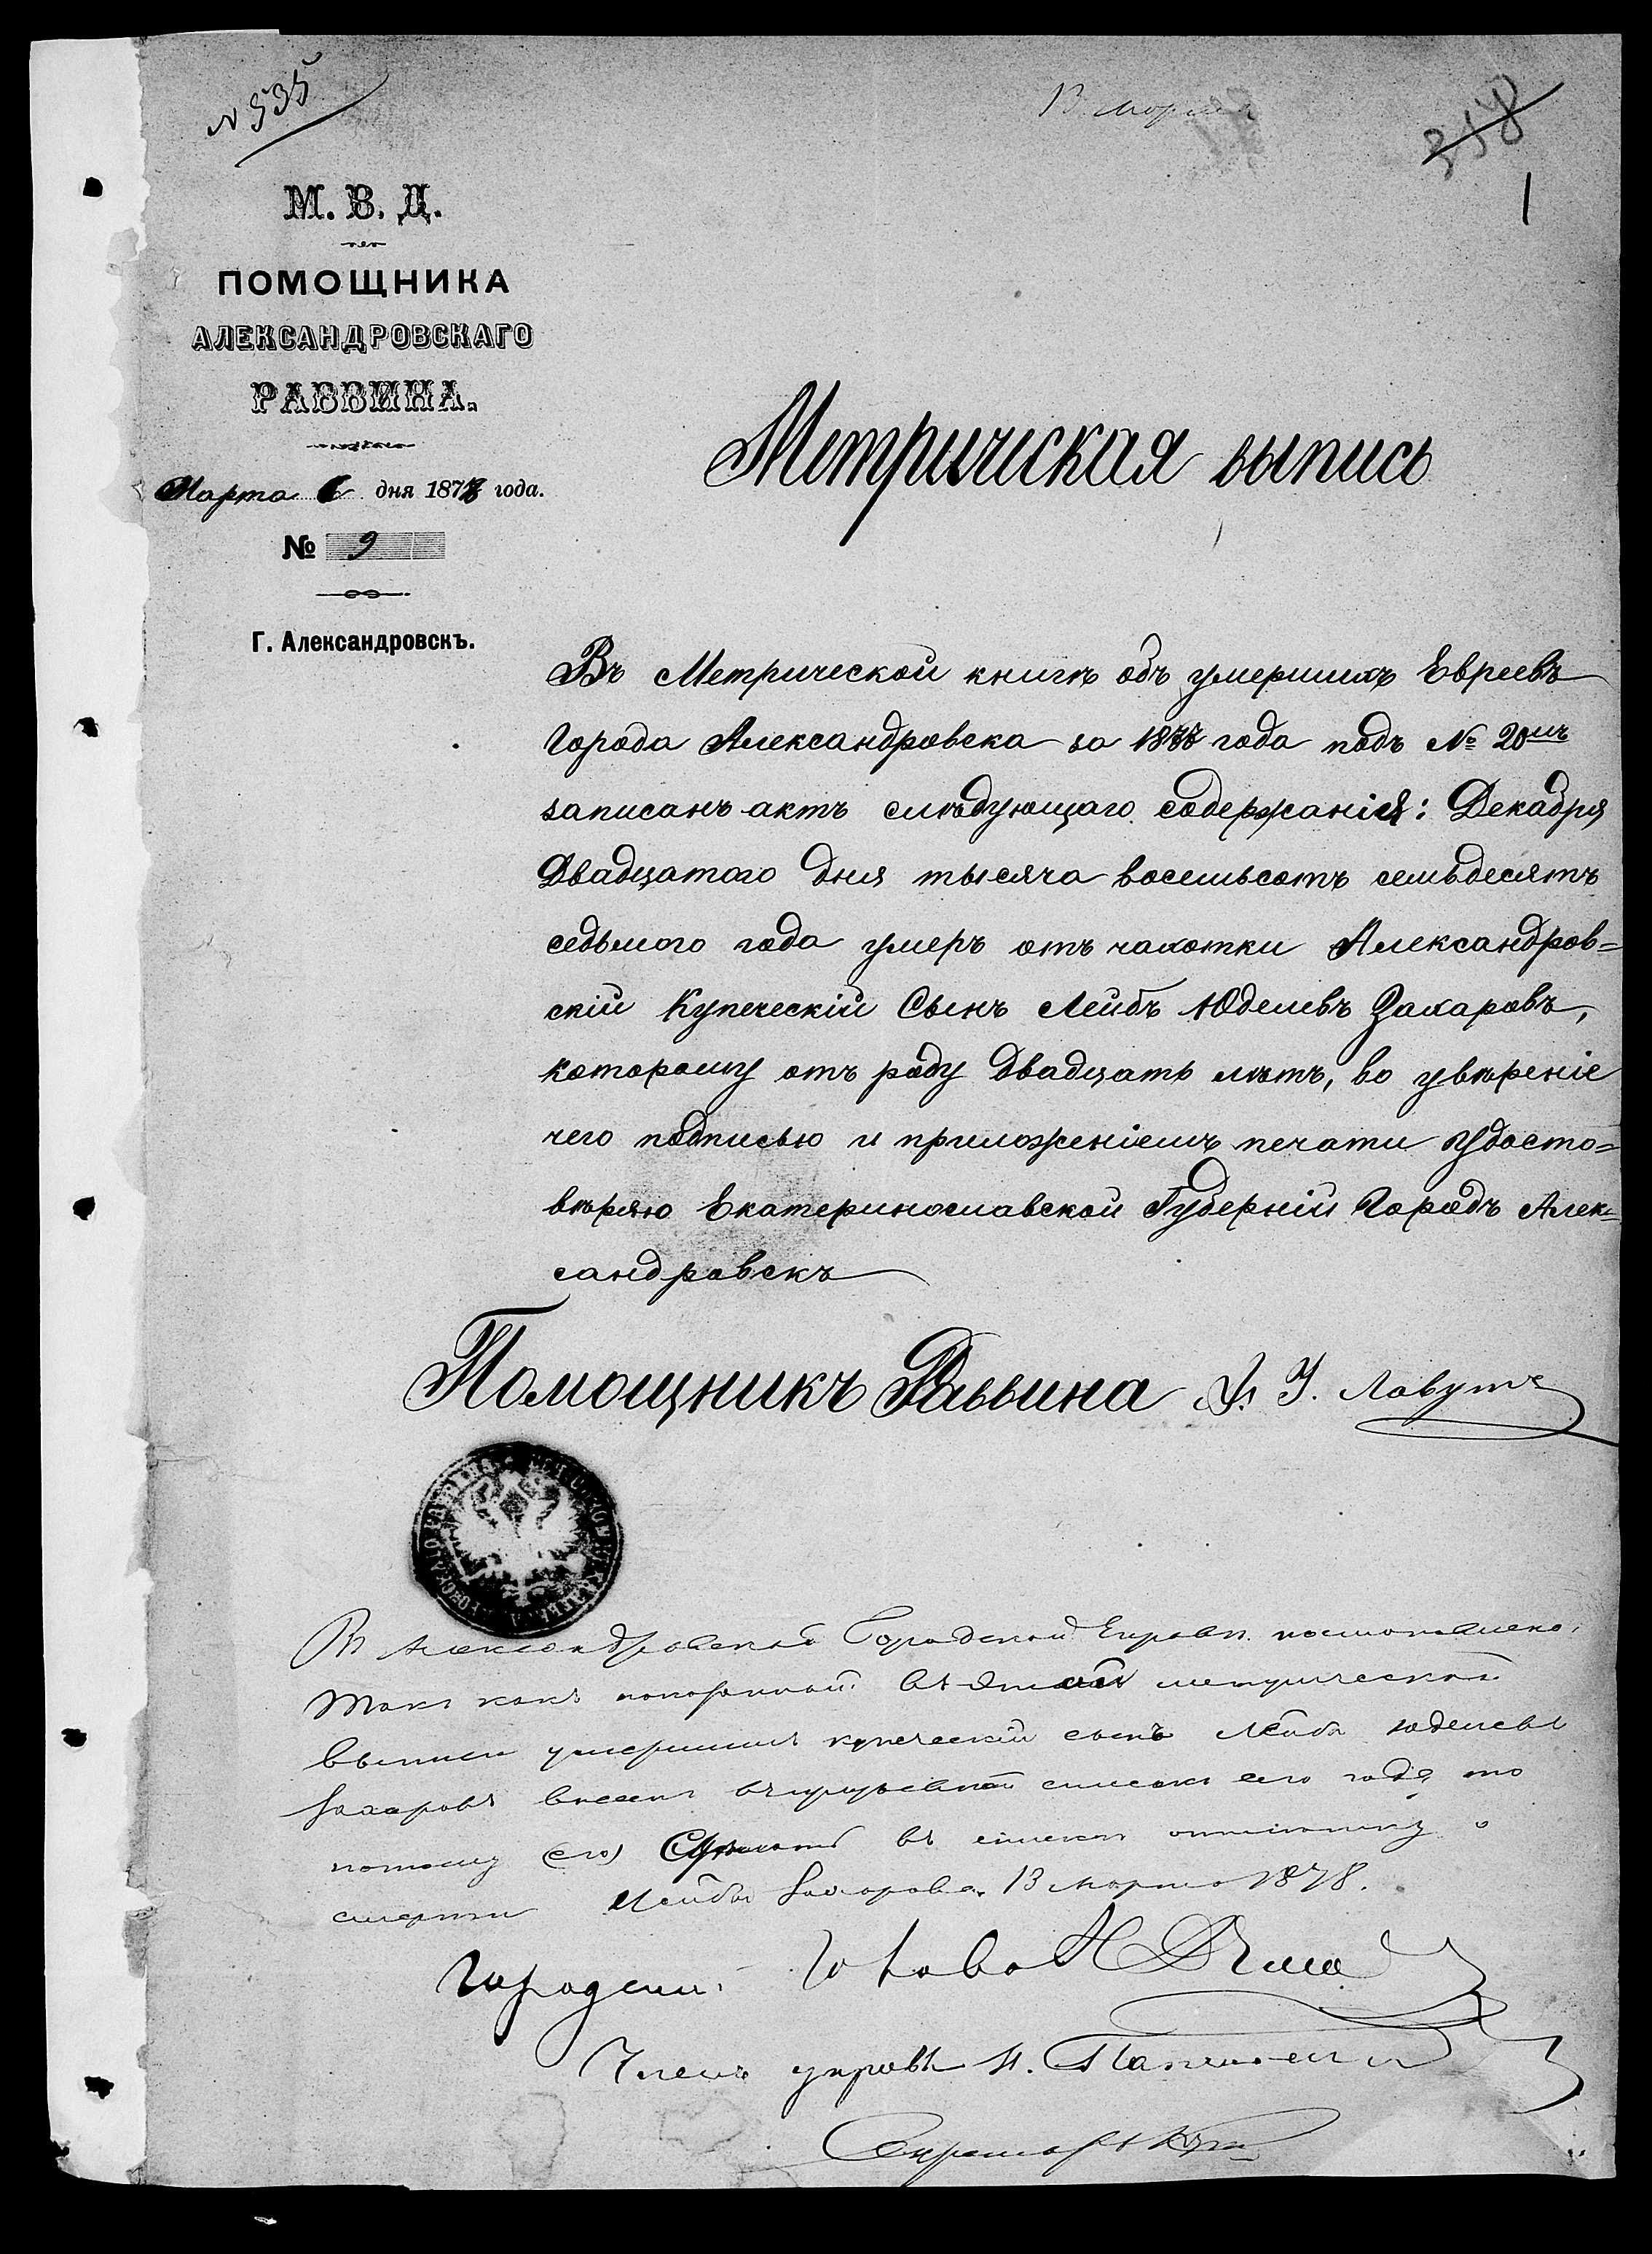 № 535
13 марта
358
1
М. В. Д.
ПОМОЩНИКА
АЛЕКСАНДРОВСКАГО
РАВВИНА.
Марта 6 дня 1878 года.
№ 9
Г. Александровскъ.
Метрическая выпись
Въ Метрической книгѣ объ умершихъ Евреевъ
Города Александровска за 1877 года подъ № 20мъ
записанъ актъ слѣдующаго содержанія: Декабря
Двадцатого дня тысяча восемьсотъ семьдесятъ
седьмого года умеръ отъ чахотки Александров=
скій Купеческій Сынъ Лейбъ Юделевъ Захаровъ,
которому отъ роду двадцать лѣтъ, во увѣреніе
чего подписью и приложеніемъ печати удосто=
вѣряю Екатеринославской Губерніи Городъ Алек=
сандровскъ
Помощникъ Раввина И. Лавутъ
Въ Александровской Городской Управѣ постановлено:
такъ какъ показанный въ этой метрической
выписи умершимъ купеческій сынъ Лейба Юделевъ
Захаровъ внесенъ въ призывной списокъ сего года, то
потому его въ списки отмѣтку о
смерти Лейбы Захарова. 13 марта 1878.
Городской Голова
Членъ управы
Секретарь